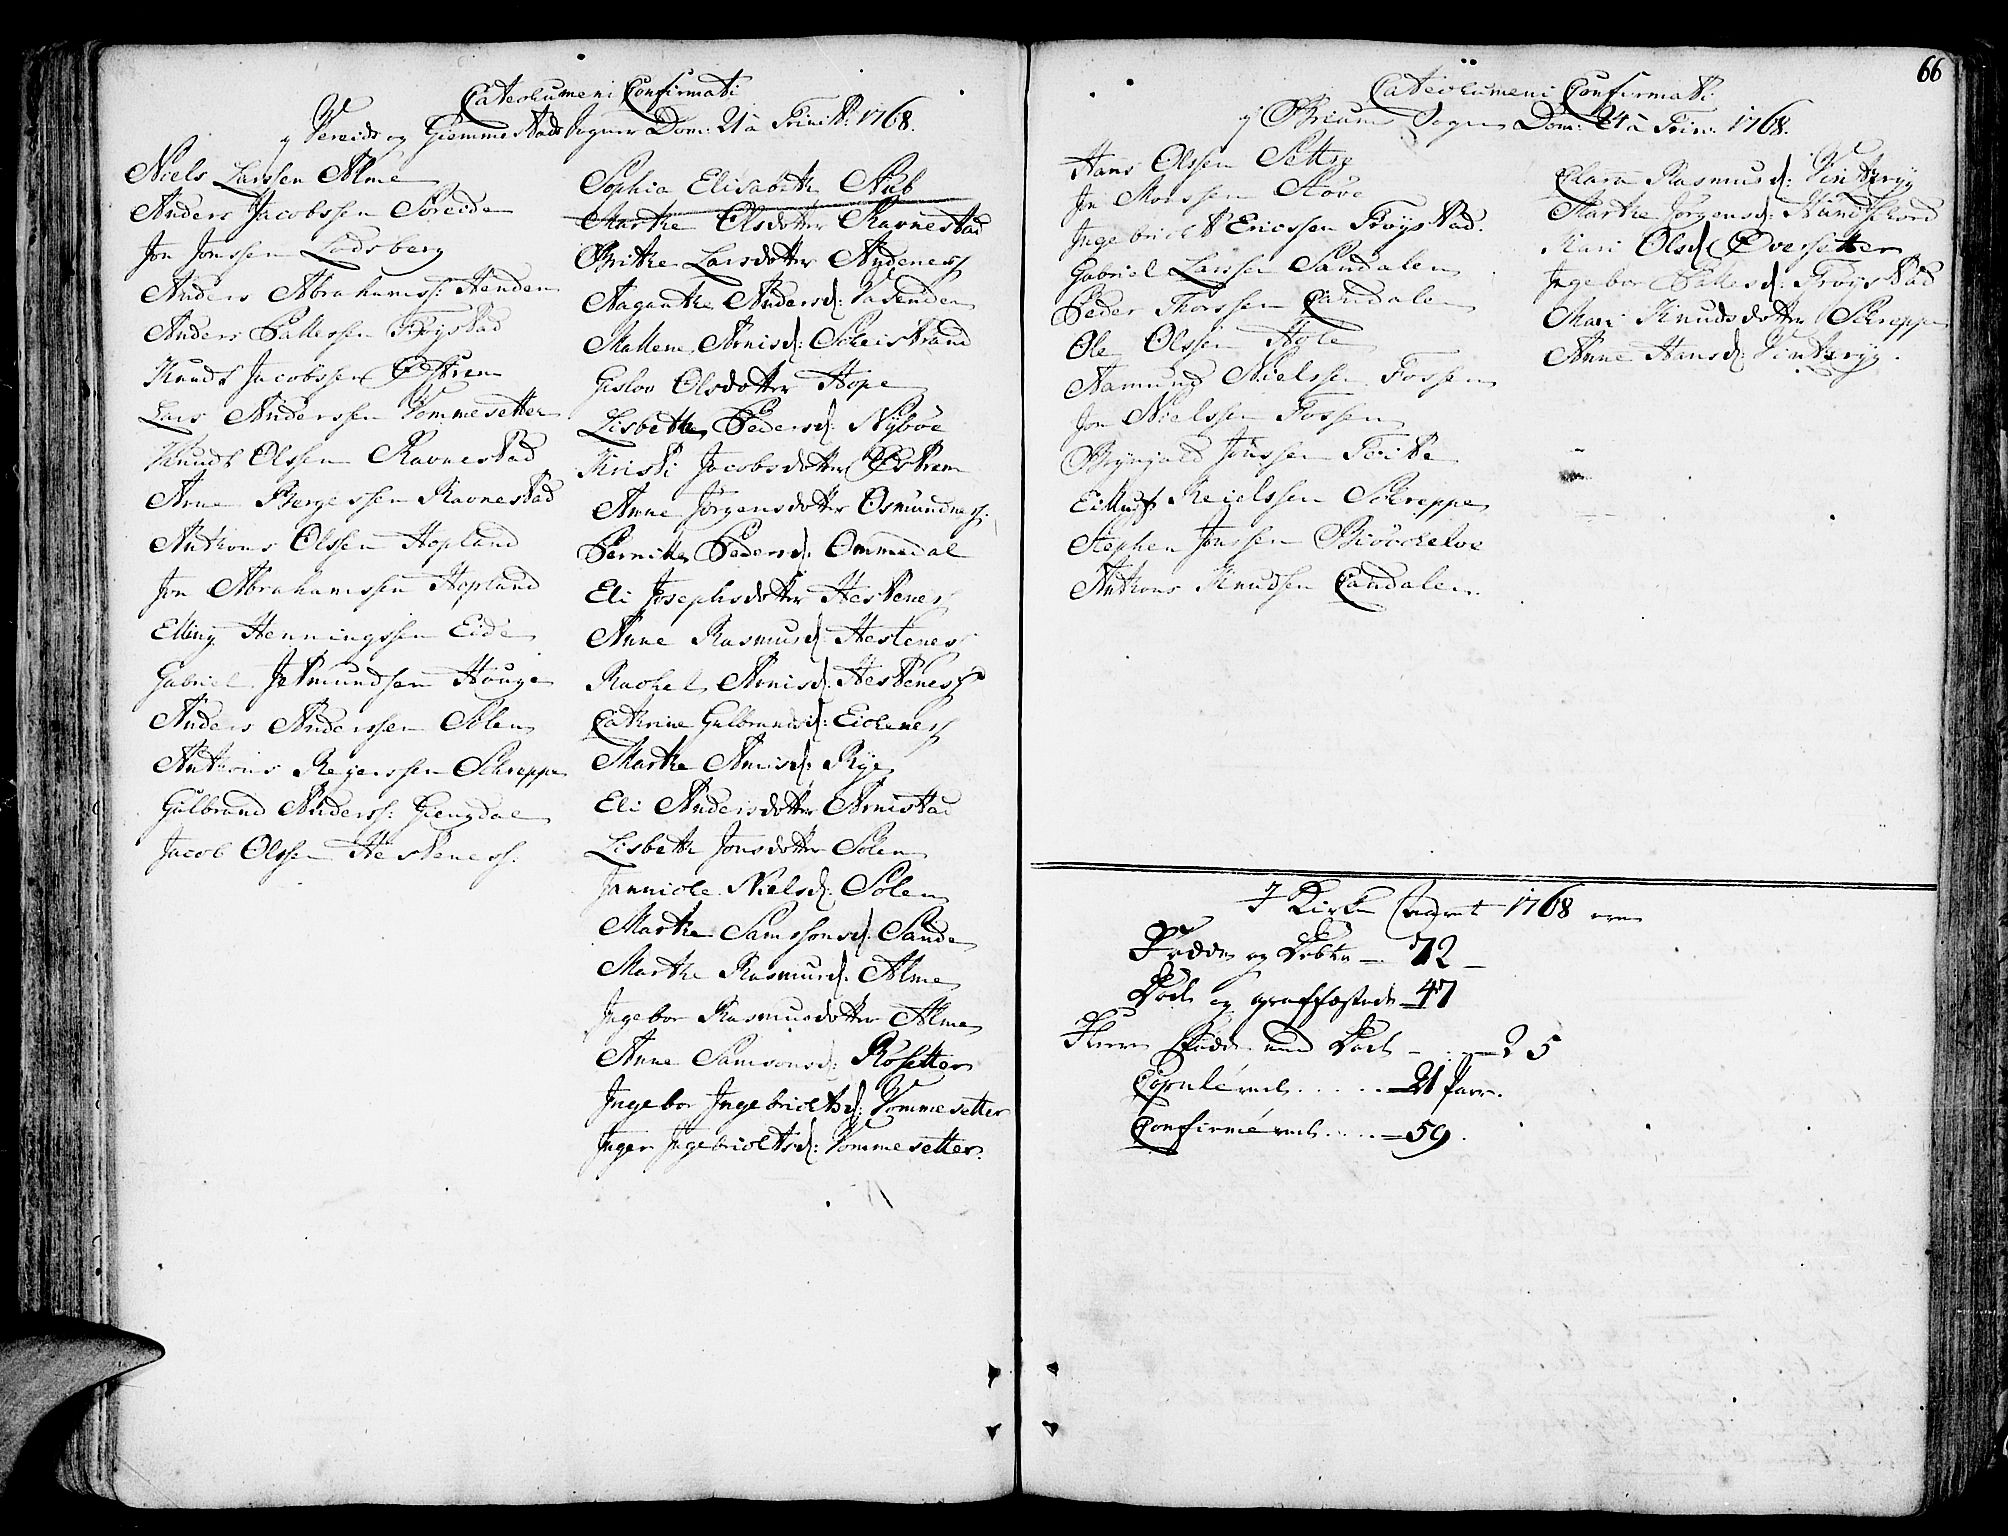 Catechumeni Confirmati
y Vereids og Giemmestads Sogner Dom: 21 à Trinit: 1768.
Niels Larssen Alme
Anders Jacobssen Söreide
Jon Jonssen Lodsberg
Anders Abrahamss: Henden
Anders Pallessen Tröystad
Knudt Jacobssen Østrem
Lars Anderssen Vommesetter
Knudt Olssen Ravnestad
Arne Børgessen Ravnestad
Anthons Olssen Hopland
Jon Abrahamssen Hopland
Elling Henningssen Eide
Gabriel Jetmundssen Houge
Anders Anderssen Solen
Anthons Regerssen Schreppe
Gulbrand Anderss: Giengdal
Jacob Olssen Hestness.
Sophia Elisabeth Nub
Marthe Olsdotter Ravnestad
Brithe Larsdotter Andeness
Aaganthe Andersd: Vasenden
Mallene Arnisd: Scheistrand
Gislov Olsdotter Hope
Lisbethe Pedersd: Nyböe
Kristi Jacobsdotter Østrem
Anne Jörgensdotter Osmundness:
Pernithe Pedersd: Ommedal
Eli Josephsdotter Hestenes
Anne Rasmusd: Hesteness
Rachel Arnisd: Hesteness
Cathrine Gulbrandsd: Eicheness
Marthe Arnisd: Rye
Eli Andersdotter Arnestad
Lisbeth Jonsdotter Solen
Jannicke Nielsd: Solen
Marthe Samssonsd: Sande
Marthe Rasmusd: Alme
Ingebor Rasmusdotter Alme
Anne Samsonsd: Rosetter
Ingebor Ingebrichtsd: Vommesetter
Inger Ingebrichtsd: Vommesetter.
66
Catechumeni Confirmati
y Briums Sogn Dom: 24 à Trin: 1768.
Hans Olssen Settre
Jn Monssen Stöve
Ingebricht Ericssen Tröystad.
Gabriel Larssen Sandalen
Peder Thorssen Candalen
Ole Olssen Hole
Aamund Nielssen Fossen
Jon Nielssen Fossen
Brynjold Jonssen Toite
Eilluf Reielssen Schreppe
Stephen Jonssen Biörckelve
Anthons Knudssen Candalen.
Clara Rasmusd: Vinteryg
Marthe Jörgensd: Nundfiord
Kari Olsd: Øvresetter
Ingebor Pallesd: Tröystad
Mari Knudsdotter Schreppe
Anne Hansd: Vinteryg.
I Kirke Aaret 1768 ere
Födde og Döbte — 72
Döde og graffæstede — 47
Fleere Födde end Döde — 25
Copulérede . . . . — 21 Parr.
Confirmérede . . . . — 59.